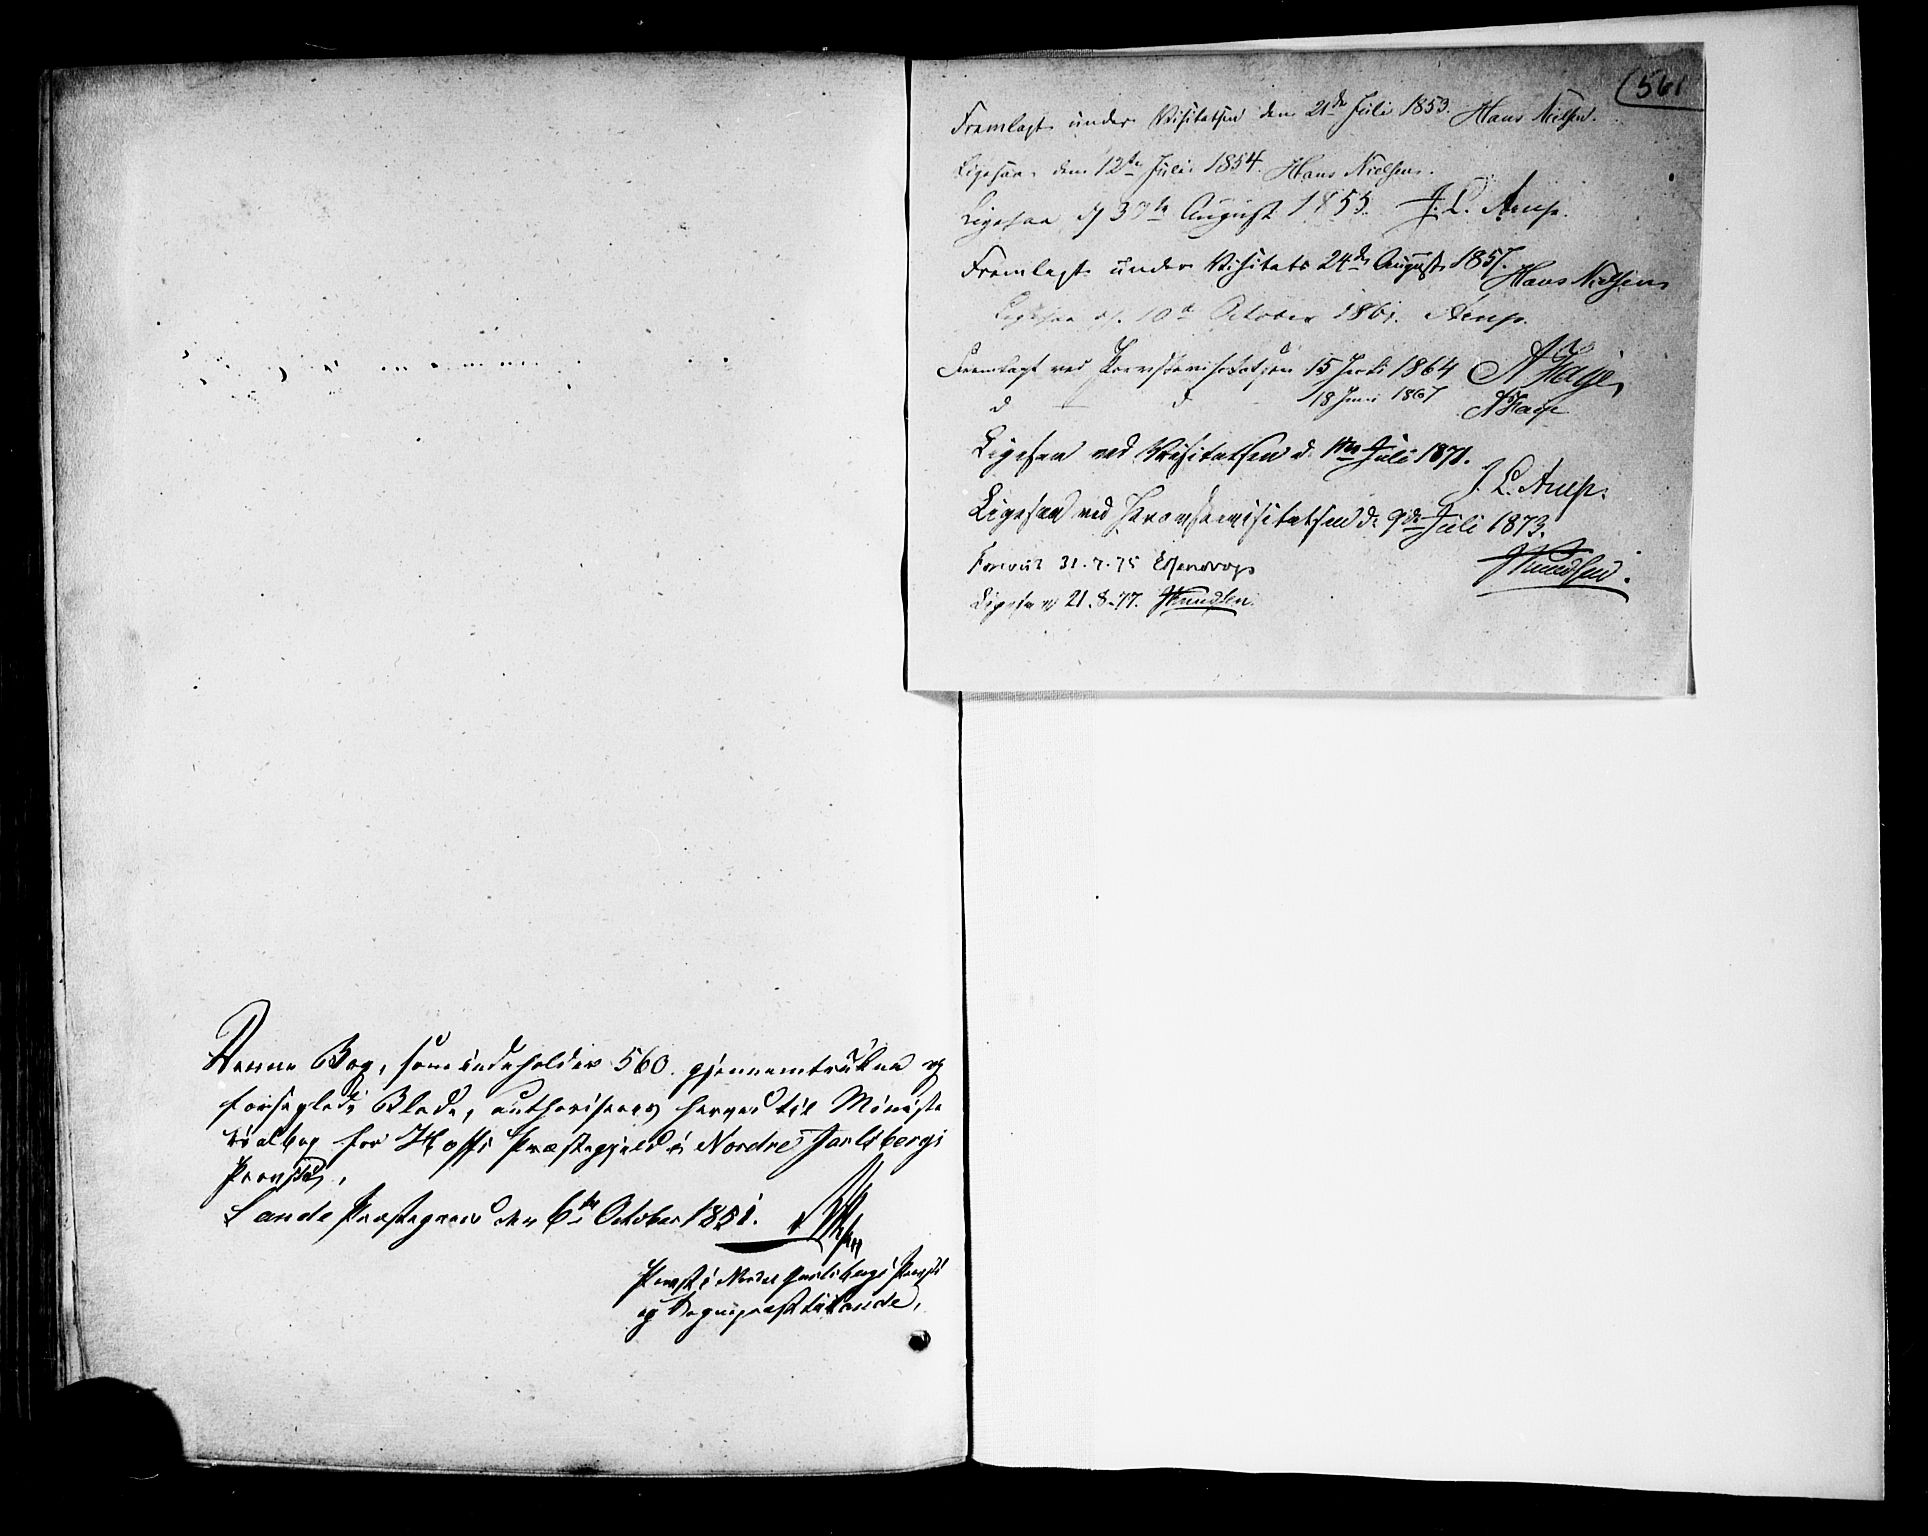 Denne Bog, som indeholder 560 gjennemtrukne og
forseglede Blade, authoriseres herved til Ministe
rialbog for Hoffs Præstegjeld i Nordre Jarlsbergs
Provstie,
Sande Præstegaard den 6te October 1851.
Provst i Nordre Jarlsbergs Provsti
og Sognepræst til Sande,
561
Fremlagt under Visitatsen den 21de Juli 1853. Hans Nielsen.
Ligesaa den 12te Juli 1854. Hans Nielsen.
Ligesaa August 1855. J. L. Arup.
Fremlagt under Visitats 24de August 1857. Hans Nielsen
Ligesaa d. 10de October 1861. Arup.
Fremlagt ved Provstevisitatsen 15 Juli 1864
d — d 18 Juni 1867
Ligesaa ved Visitatsen d. Juli 1871.
J. L. Arup.
Ligesaa ved Provstevisitatsen d. 9de Juli 1873.
Knudsen.
Forevist 31.7.75 Essendrop
Ligesaa 21.8.77. Knudsen.